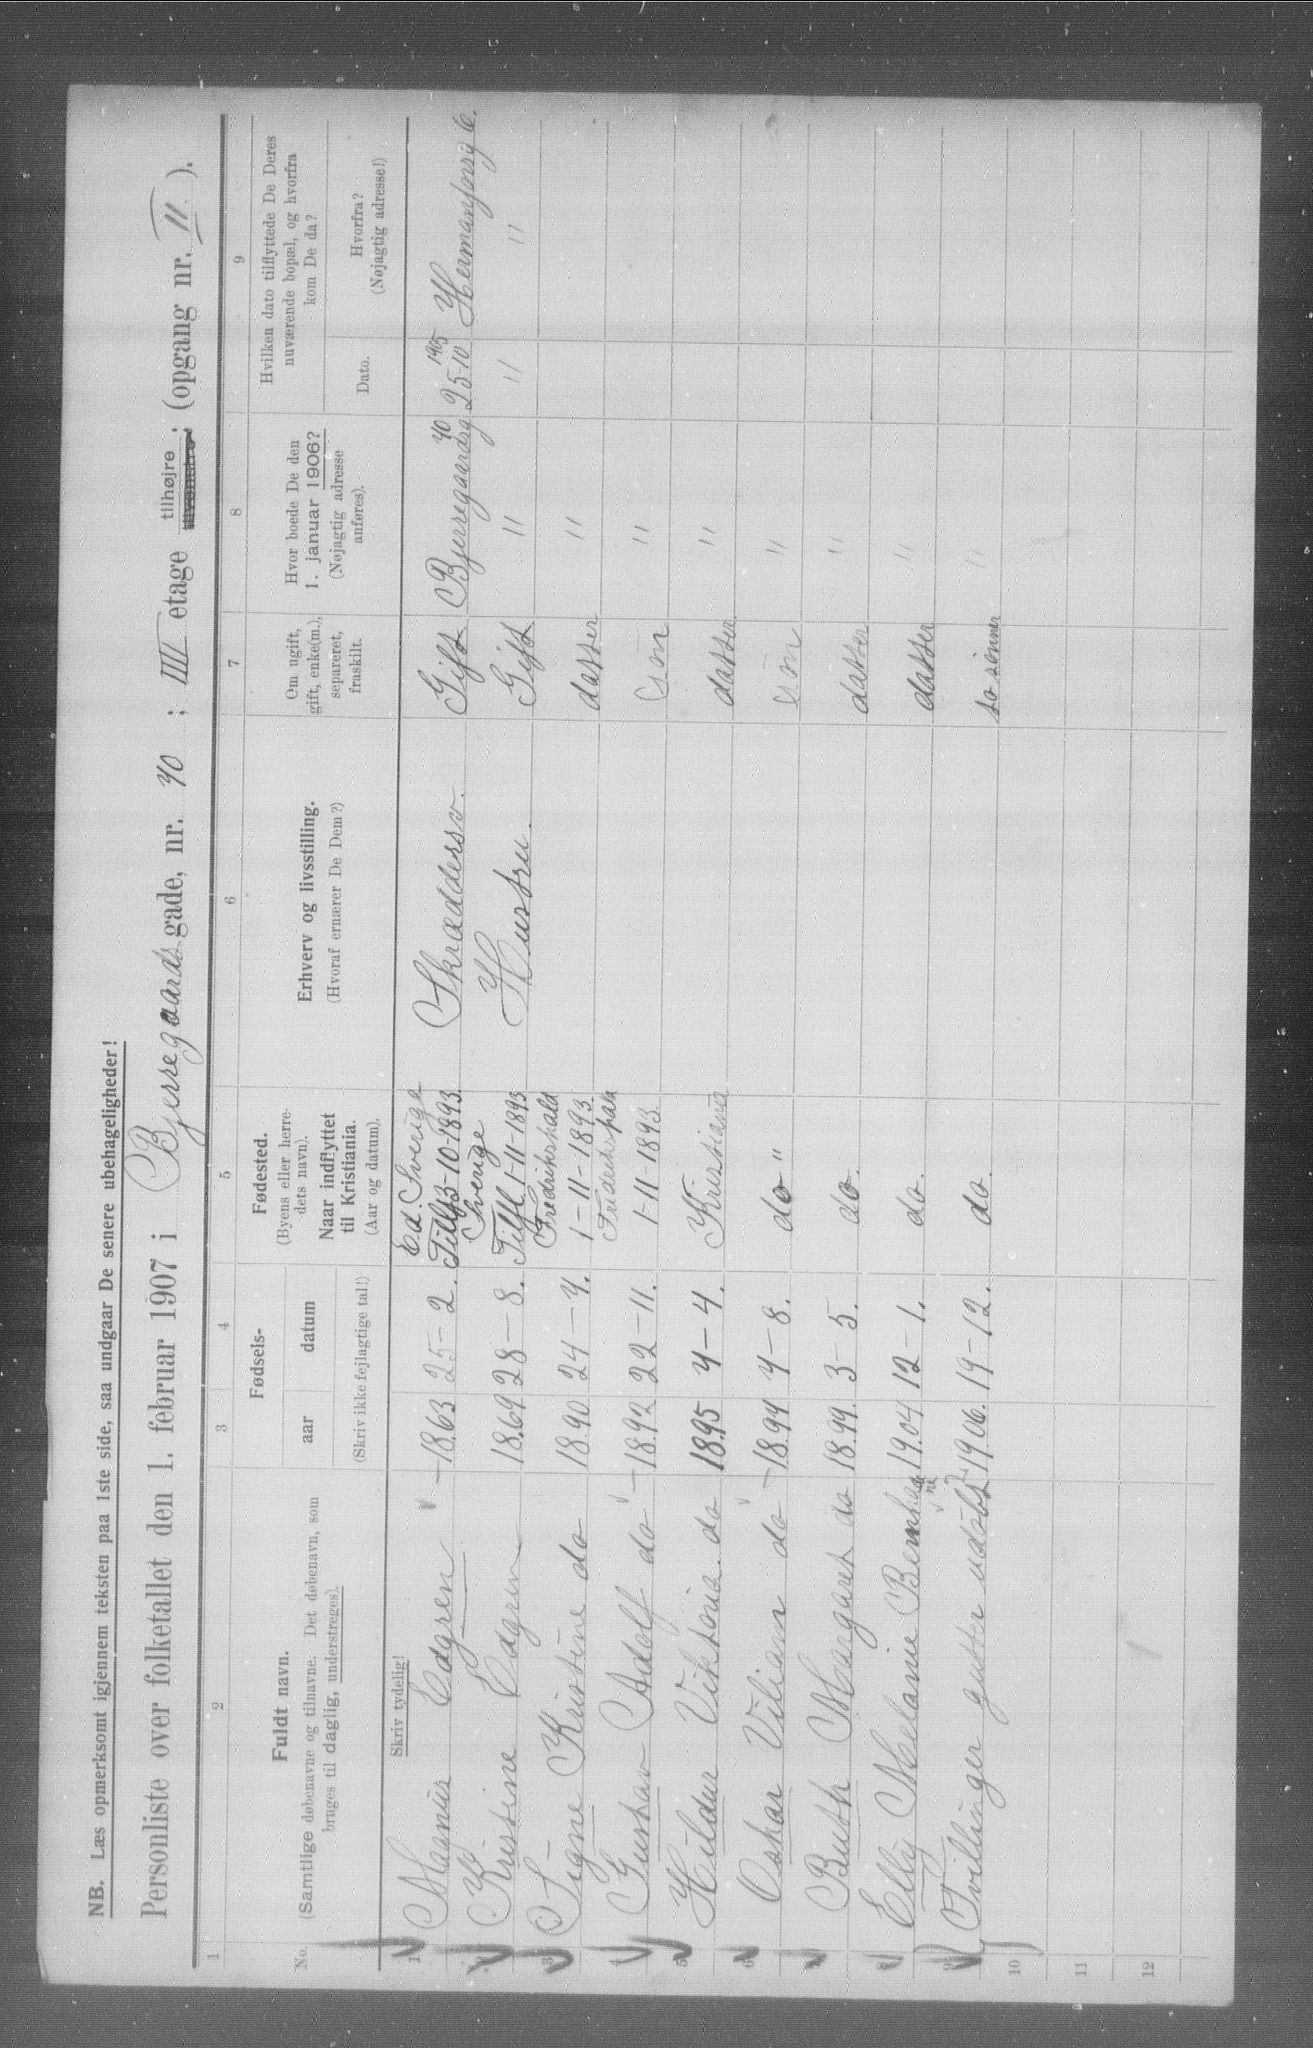 NB. Læs opmerksomt igjennem teksten paa 1ste side, saa undgaar De senere ubehageligheder!
Personliste over folketallet den 1. februar 1907 i Bjerregaardsgade, nr. 40; IIII etage tilhøjre; (opgang nr. II).
1 2 3 4 5 6 7 8 9
No.
Fuldt navn.
(Samtlige døbenavne og tilnavne. Det døbenavn, som
bruges til daglig, understreges).
Fødsels-
aar datum
(Skriv ikke fejlagtige tal!)
Fødested.
(Byens eller herre-
dets navn).
Naar indflyttet
til Kristiania.
(Aar og datum).
Erhverv og livsstilling.
(Hvoraf ernærer De Dem?)
Om ugift,
gift, enke(m.),
separeret,
fraskilt.
Hvor boede De den
1. januar 1906?
(Nøjagtig adresse
anføres).
Hvilken dato tilflyttede De Deres
nuværende bopæl, og hvorfra
kom De da?
Dato.
Hvorfra?
(Nøjagtig adresse!)
Skriv tydelig!
1 Magnus Edgren 1863 25-2. Ed. Sverige Tilf 3-10-1893. Skræddersv. Gift Bjerregaardsg 40 25-10 1905 Hermanforsg 6.
2 Kristine Edgren 1869 28-8. Sverige Tilfl. 1-11-1893 Hustru. Gift " " "
3 Signe Kristine do 1890 24-4. Fredrikshald 1-11-1893 datter "
4 Gustav Adolf do 1892 22-11. Fredrikshald 1-11-1893. søn "
5 Hildur Viktoria do 1895 4-4. Kristiania datter "
6 Oskar Viliam do 1897 4-8. do " søn "
7 Buth Margaret do 1899. 3-5. do. datter "
8 Elly Melanie 1904 12-1. do. datter "
9 Tvillinger gutter udøbt 1906. 19-12. do. to sønner "
10
11
12